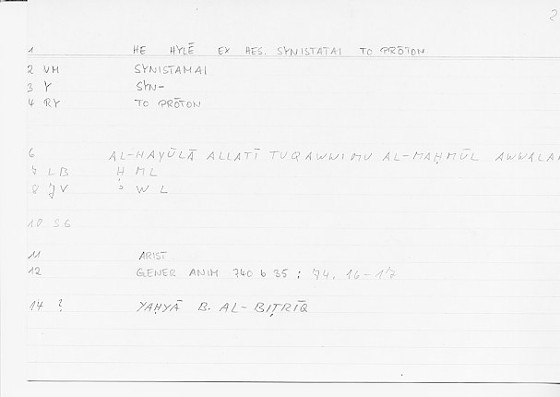 2
1 HE HYLĒ EX HES. SYNISTATAI TO PRŌTON
2 VM SYNISTAMAI
3 Y SYN-
4 RY TO PRŌTON
6 AL-HAYŪLĀ ALLATĪ TUQAWWIMU AL-MAḤMŪL AWWALAN
7 LB Ḥ ML
8 JV ʾ W L
10 56
11 ARIST
12 GENER ANIM 740 b 35 : 74, 16-17
14 ? YAḤYĀ B. AL-BIṬRĪQ